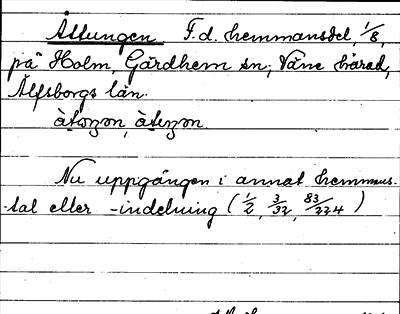 Åttungen F.d. hemmansdel, 1/8,
på Holm, Gärdhem sn, Väne härad,
Älfsborgs län.
Nu uppgången i annat hemmans-
tal eller -indelning (1/2, 3/32, 83/224)